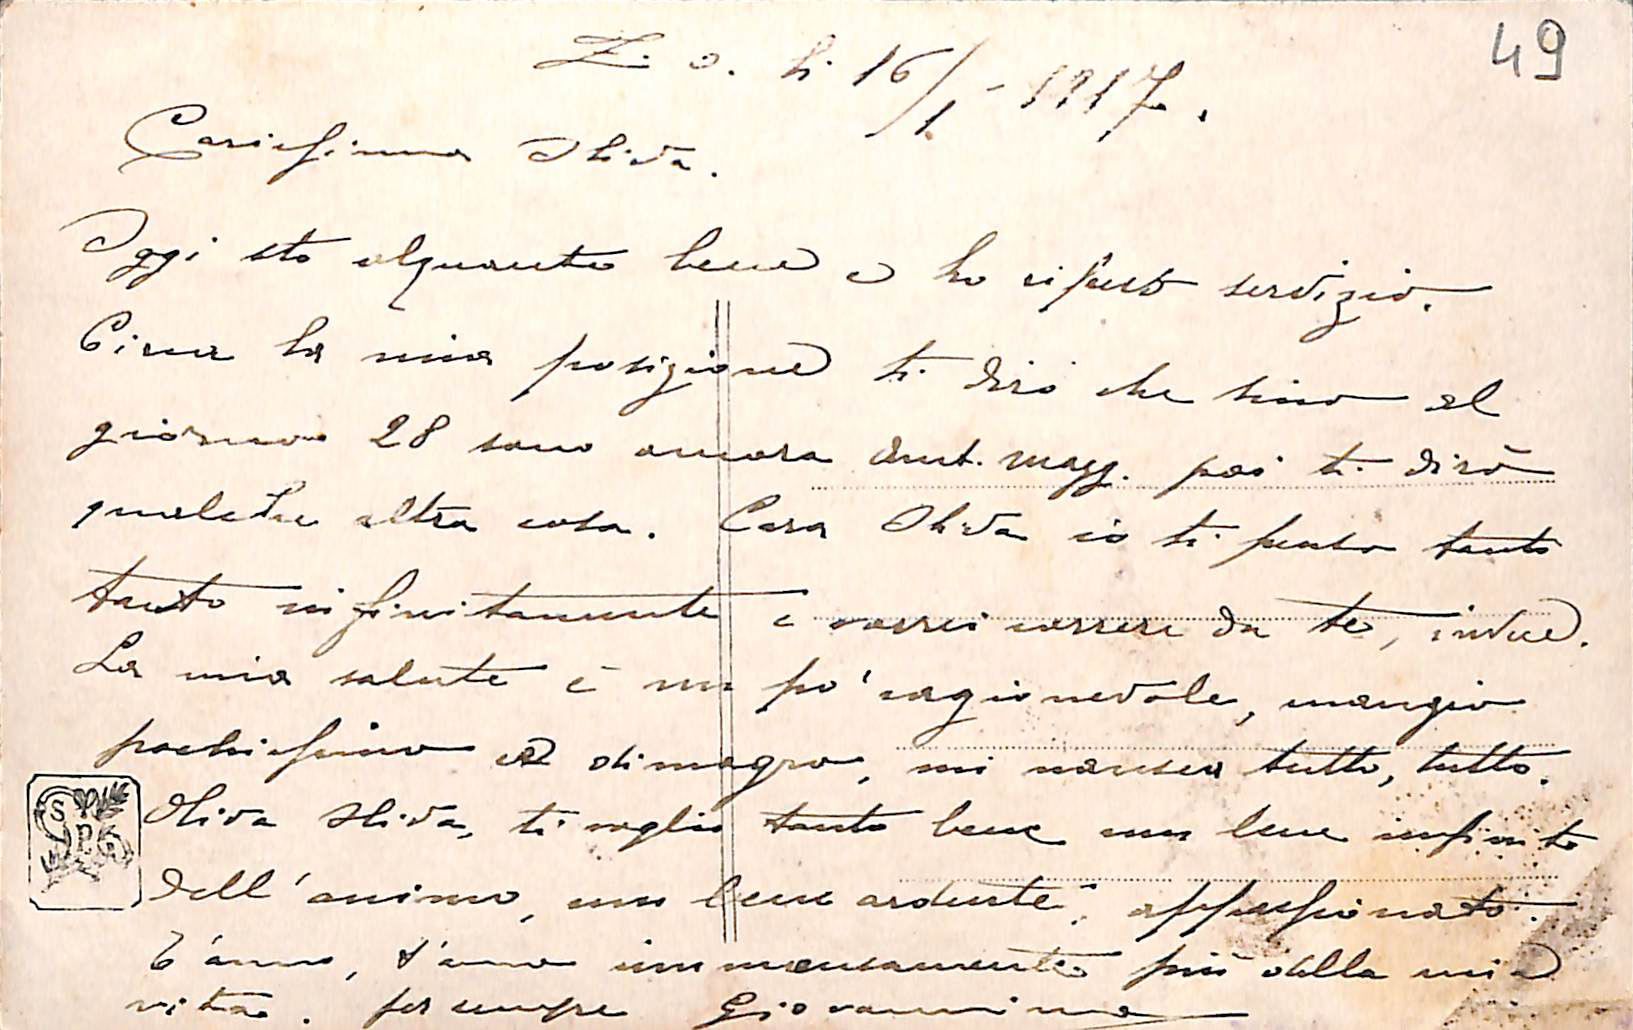 49
Z. o. li 16/1 - 1917.
Carissima Oliva.
Oggi sto alquanto bene e ho ripreso servizio.
Circa la mia posizione ti dirò che sino al
giorno 28 sono ancora Aiut. Magg. poi ti dirò
qualche altra cosa. Cara Oliva io ti penso tanto
tanto infinitamente e vorrei correre da te,
La mia salute è un po' ragionevole, mangio
pochissimo e dimagro, mi nausea tutto, tutto.
Oliva Oliva, ti voglio tanto bene un bene infinito
dell'animo, un bene ardente, appassionato.
T'amo, t'amo immensamente più della mia
vita. per sempre Giovannino